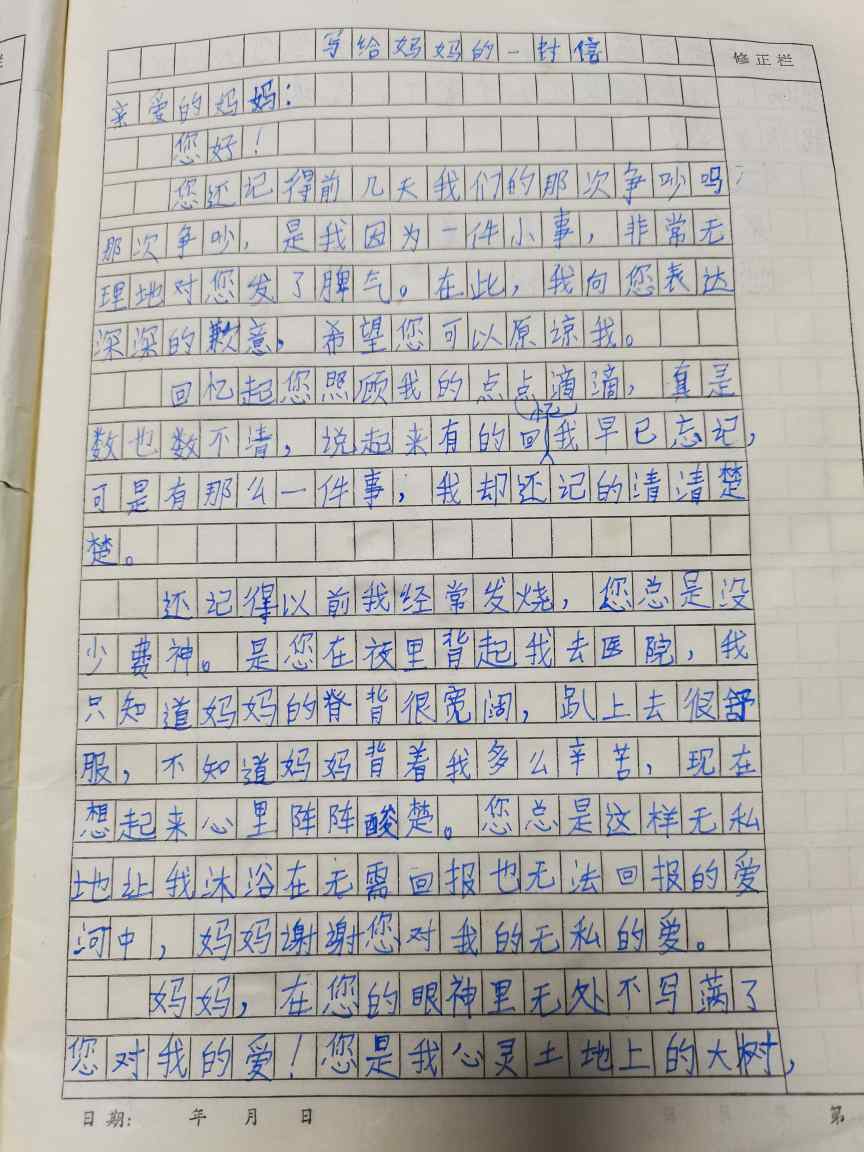 写给妈妈的一封信
修正栏
亲爱的妈妈：
您好！
您还记得前几天我们的那次争吵吗？
那次争吵，是我因为一件小事，非常无
理地对您发了脾气。在此，我向您表达
深深的歉意，希望您可以原谅我。
回忆起您照顾我的点点滴滴，真是
数也数不清，说起来有的回忆我早已忘记，
可是有那么一件事，我却还记的清清楚
楚。
还记得以前我经常发烧，您总是没
少费神。是您在夜里背起我去医院，我
只知道妈妈的脊背很宽阔，趴上去很舒
服，不知道妈妈背着我多么辛苦，现在
想起来心里阵阵酸楚。您总是这样无私
地让我沐浴在无需回报也无法回报的爱
河中，妈妈谢谢您对我的无私的爱。
妈妈，在您的眼神里无处不写满了
您对我的爱！您是我心灵土地上的大树，
日期： 年 月 日 第